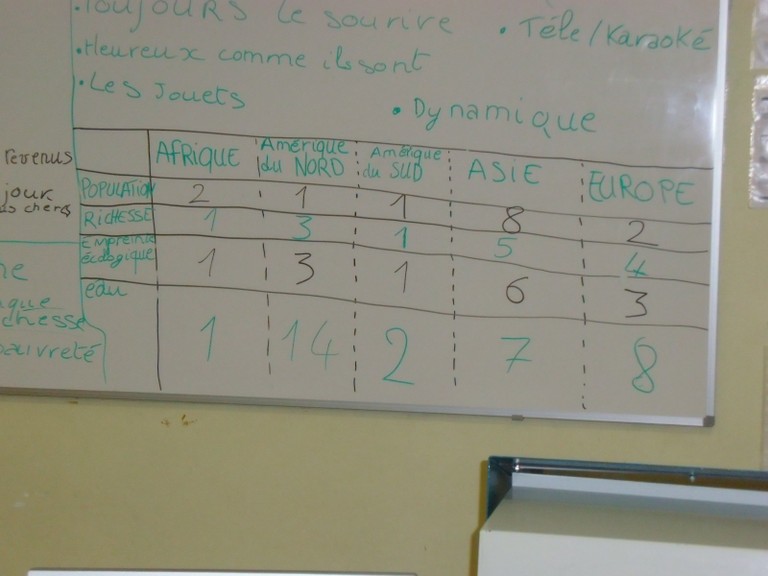 Toujours le sourire
• Téle/Karaoké
• Heureux comme ils sont
• Les Jouets
• Dynamique
revenus
jour
chers
AFRIQUE Amérique du NORD Amérique du SUD ASIE EUROPE
POPULATION 2 1 1 8 2
RICHESSE 1 3 1 5 4
Empreinte écologique 1 3 1 6 3
eau 1 14 2 7 8
pauvreté